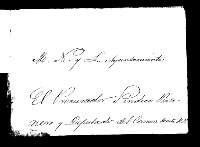 M. N. y L. Ayuntamiento
El Procurador Sindico Perso
nero y Diputado del Comun